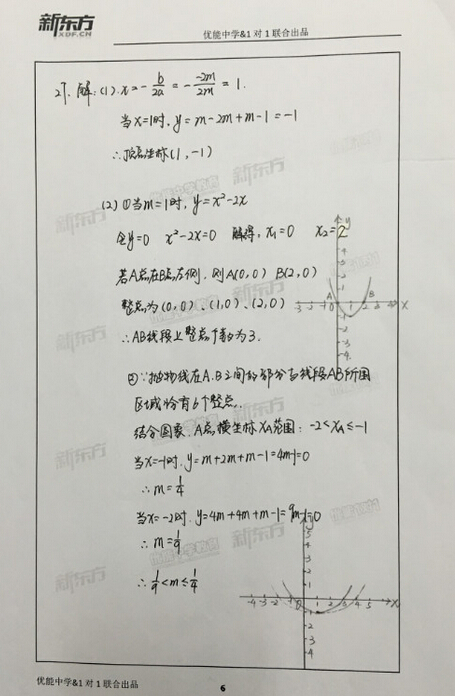 新东方
XDF.CN
优能中学&1 对 1 联合出品
27. 解:(1). x=-b/2a=--2m/2m=1.
当x=1时, y=m-2m+m-1=-1
∴顶点坐标(1,-1)
(2) ①当m=1时, y=x²-2x
令y=0 x²-2x=0 解得, x₁=0 x₂=2
若A点在B点左侧, 则A(0,0) B(2,0)
整点为(0,0)、(1,0)、(2,0)
∴AB线段上整点个数为3.
②∵抛物线在A.B之间的部分与线段AB所围
区域恰有6个整点.
结合图象, A点横坐标XA范围: -2<XA≤-1
当x=-1时, y=m+2m+m-1=4m-1=0
∴m=1/4
当x=-2时, y=4m+4m+m-1=9m-1=0
∴m=1/9
∴1/9<m≤1/4
优能中学&1 对 1 联合出品
6